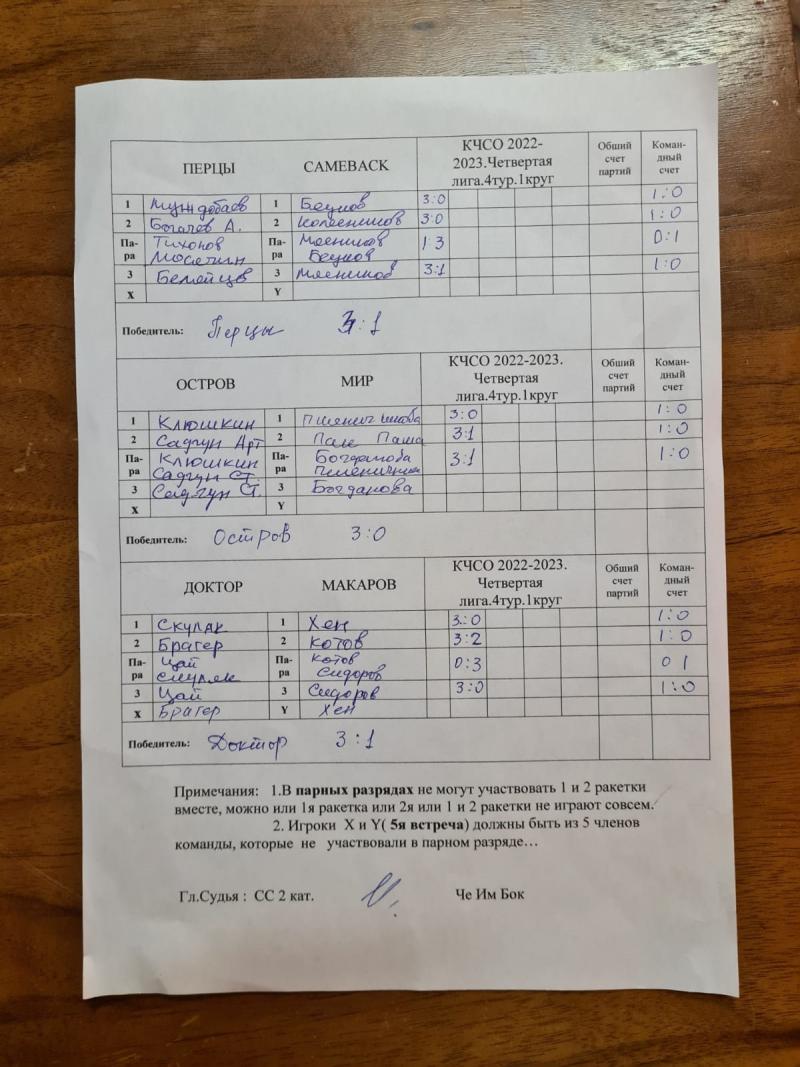 ПЕРЦЫ САМЕВАСК КЧСО 2022-2023.Четвертая лига.4тур.1круг Общий счет партий Командный счет
1 1 Беднов 3:0 1:0
2 Богачев А. 2 Колесников 3:0 1:0
Па-ра Тихонов Па-ра Мясников 1:3 0:1
Беднов
3 3 Мясников 3:1 1:0
X Y
Победитель: Перцы 3:1
ОСТРОВ МИР КЧСО 2022-2023. Четвертая лига.4тур.1круг Общий счет партий Командный счет
1 Клюшкин 1 Пшеничникова 3:0 1:0
2 Садчун Арт 2 Паше 3:1 1:0
Па-ра Клюшкин Па-ра Богданова 3:1 1:0
Садчун Ст.
3 Садчун Ст. 3 Богданова
X Y
Победитель: Остров 3:0
ДОКТОР МАКАРОВ КЧСО 2022-2023. Четвертая лига.4тур.1круг Общий счет партий Командный счет
1 Скуляк 1 Хен 3:0 1:0
2 Брагер 2 Котов 3:2 1:0
Па-ра Цай Па-ра Котов 0:3 0 1
Скуляк Сидоров
3 Цай 3 Сидоров 3:0 1:0
X Брагер Y Хен
Победитель: Доктор 3:1
Примечания: 1.В парных разрядах не могут участвовать 1 и 2 ракетки
вместе, можно или 1я ракетка или 2я или 1 и 2 ракетки не играют совсем.
2. Игроки X и Y( 5я встреча) должны быть из 5 членов
команды, которые не участвовали в парном разряде…
Гл.Судья : СС 2 кат. Че Им Бок